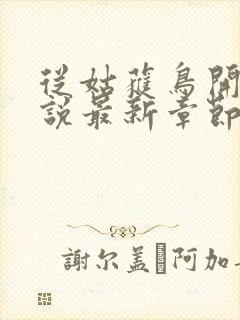 從姑獲鳥開
說最新章節
謝尔盖 阿加